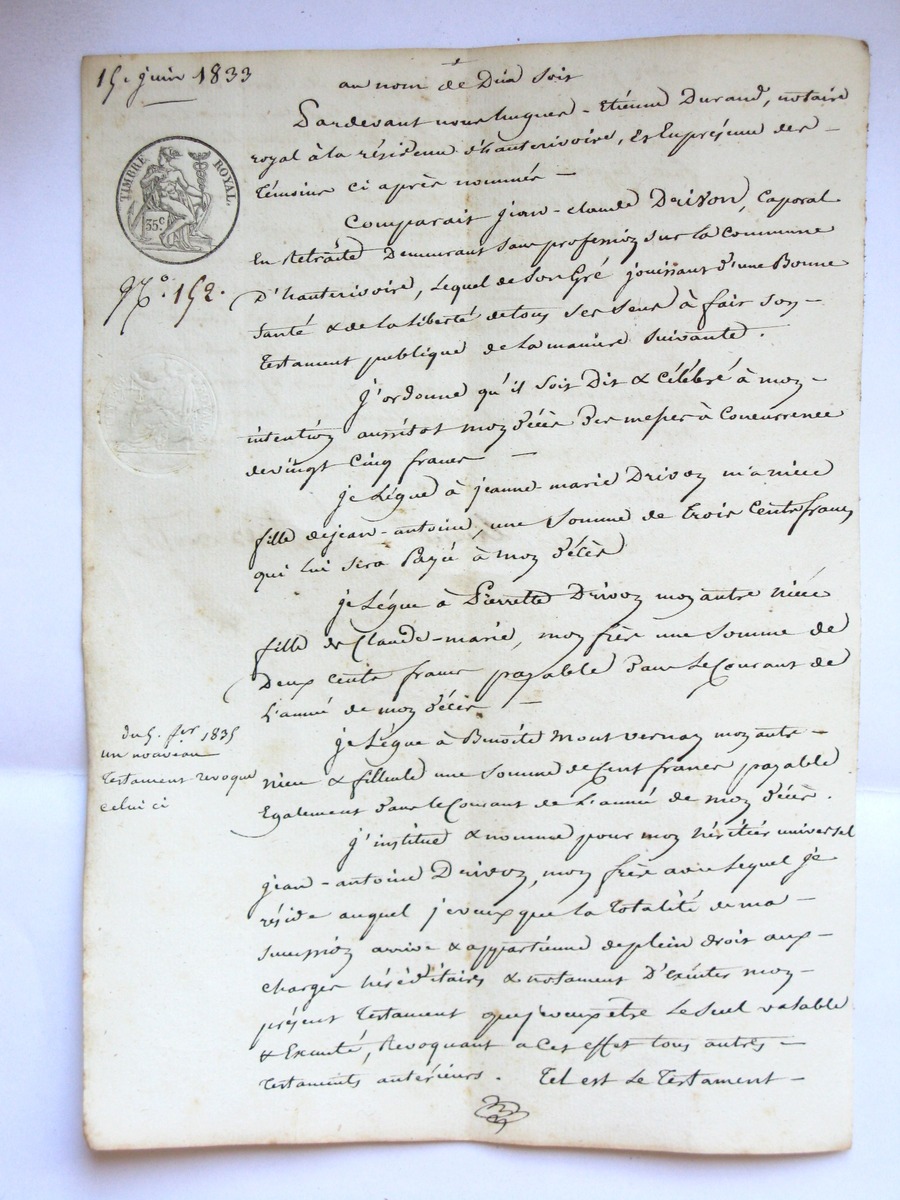 15 juin 1833
au nom de Dieu soit
Pardevant nous hugues-Etienne Durand, notaire
royal à la résidence d'hauterivoire, Et En présence des
Témoins ci après nommés —
TIMBRE ROYAL.
35 c
Comparait jean-claude Drivon, Caporal
En Retraite Demeurant sans profession sur la Commune
D'hauterivoire, Lequel de son Gré jouissant d'une Bonne
N.o 152.
santé & de la Liberté de tous ses sens à fait son
Testament publique de la manière suivante.
j'ordonne qu'il soit Dit & Célébré à mon
intention aussitot mon décès des messes à Concurrence
de vingt Cinq francs —
je Lègue à jeanne-marie Drivon m'a niece
fille de jean-antoine, une somme de trois Cents francs
qui lui sera Payée à mon décès
je Lègue à Pierrette Drivon mon autre nièce
fille de Claude-marie, mon frère une somme de
Deux cents francs payable dans Le Courant de
L'année de mon décès —
du 5. fer 1835
un nouveau
Testament revoque
celui ci
je Lègue à Benoîte Mont vernay mon autre
niece & filleule une somme de Cent francs payable
Egalement dans le Courant de L'année de mon décès.
j'institue & nomme pour mon héritier universel
jean-antoine Drivon, mon frère avec Lequel je
réside auquel je veux que la Totalité de ma
succession arrive & appartienne de plein droit aux
charges héréditaires & notament D'exécuter mon
présent Testament que je veux être Le seul valable
& Exécuté, Revoquant a Cet effet tous autres
Testaments antérieurs. Tel est Le Testament —